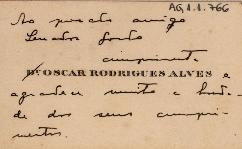 AG.1.1.766
Ao presado amigo
Senador
cumprimenta
Dr. OSCAR RODRIGUES ALVES e
agradece muito a bonda-
de dos seus cumpri-
mentos.